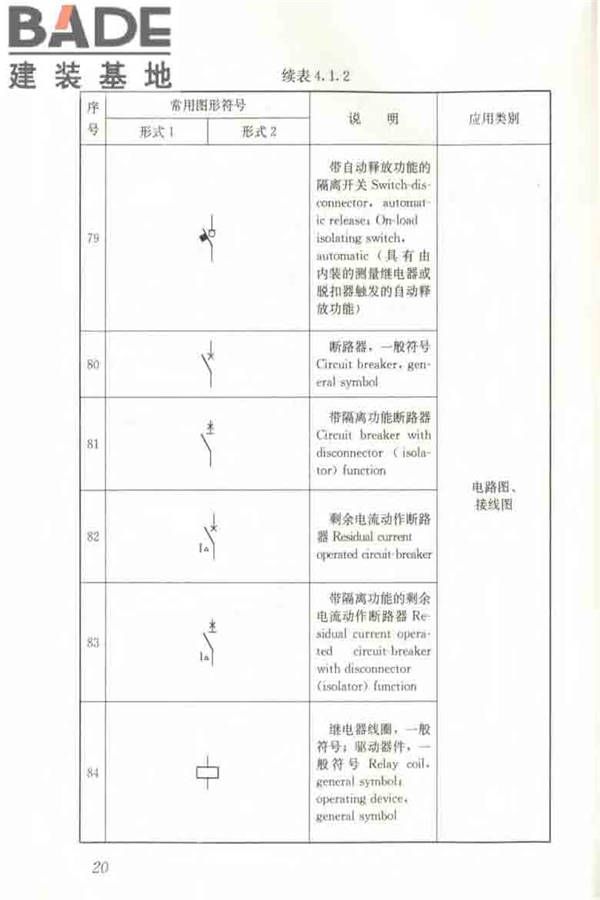 BADE
建装基地
续表4.1.2
序号
常用图形符号
说 明
应用类别
形式1
形式2
79
带自动释放功能的
隔离开关 Switch-dis-
connector, automat-
ic release; On-load
isolating switch,
automatic (具有由
内装的测量继电器或
脱扣器触发的自动释
放功能)
80
断路器，一般符号
Circuit breaker, gen-
eral symbol
81
带隔离功能断路器
Circuit breaker with
disconnector (isola-
tor) function
82
I△
剩余电流动作断路
器 Residual current
operated circuit-breaker
83
I△
带隔离功能的剩余
电流动作断路器 Re-
sidual current opera-
ted circuit-breaker
with disconnector
(isolator) function
84
继电器线圈，一般
符号；驱动器件，一
般符号 Relay coil,
general symbol;
operating device,
general symbol
电路图、
接线图
20